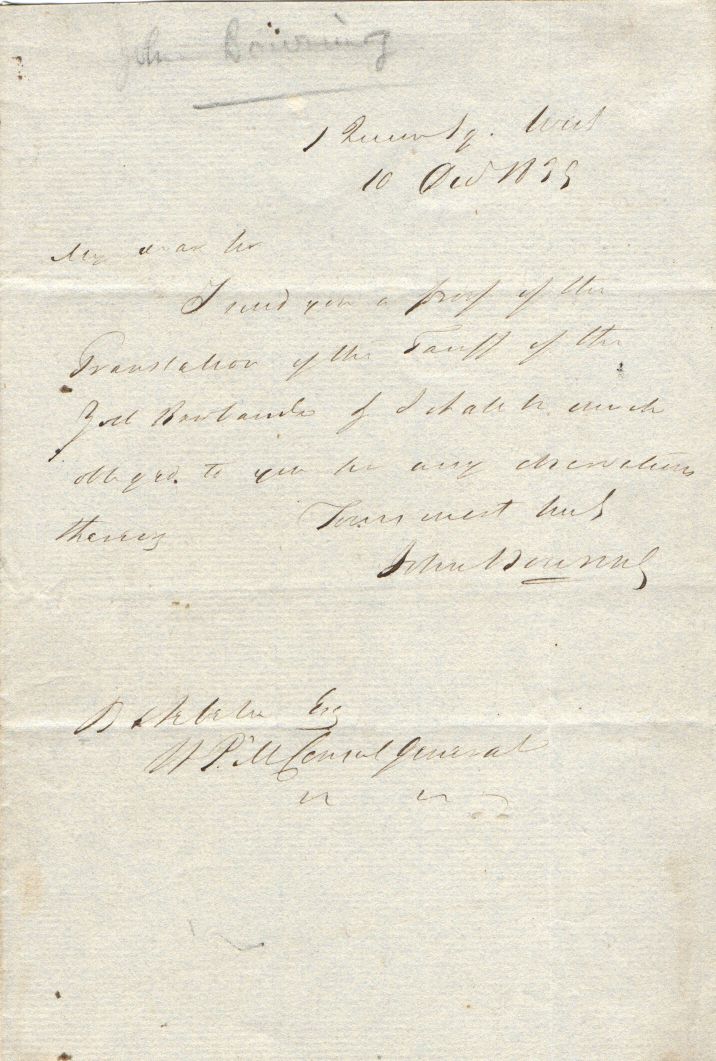 John Bowring
1 Queen Sq. West
10 Oct 1839
My dear Sir
I send you a proof of the
Translation of the Tariff of the
Zoll Verbande & I shall be much
obliged to you for any observations
thereon
Yours most truly
John Bowring
B Hebeler Esq
H P M Consul General